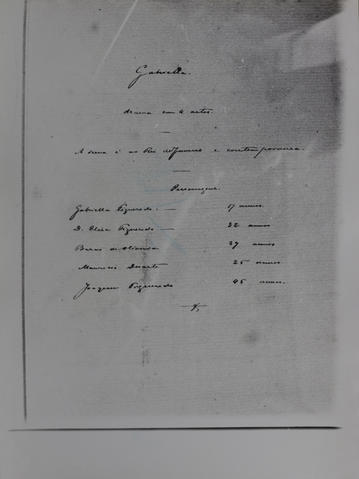 Gabriella.
drama em 4 actos.
A scena é no Rio de Janeiro e contemporanea.
Personagens
Gabriella Figueredo. — 17 annos.
D. Elisa Figueredo — 32 annos.
Barão de 37 annos
Mauricio Duarte 25 annos.
Joaquim Figueredo 45 annos.